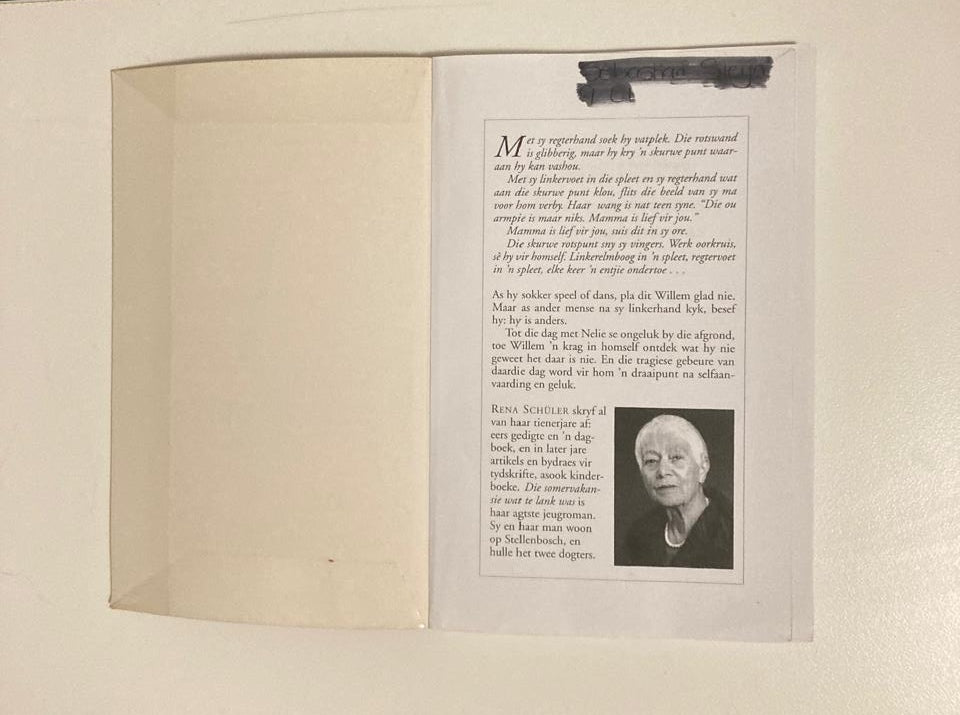 Met sy regterhand soek hy vatplek. Die rotswand
is glibberig, maar hy kry 'n skurwe punt waar-
aan hy kan vashou.
Met sy linkervoet in die spleet en sy regterhand wat
aan die skurwe punt klou, flits die beeld van sy ma
voor hom verby. Haar wang is nat teen syne. “Die ou
armpie is maar niks. Mamma is lief vir jou.”
Mamma is lief vir jou, suis dit in sy ore.
Die skurwe rotspunt sny sy vingers. Werk oorkruis,
sê hy vir homself. Linkerelmboog in 'n spleet, regtervoet
in 'n spleet, elke keer 'n entjie ondertoe . . .
As hy sokker speel of dans, pla dit Willem glad nie.
Maar as ander mense na sy linkerhand kyk, besef
hy: hy is anders.
Tot die dag met Nelie se ongeluk by die afgrond,
toe Willem 'n krag in homself ontdek wat hy nie
geweet het daar is nie. En die tragiese gebeure van
daardie dag word vir hom 'n draaipunt na selfaan-
vaarding en geluk.
RENA SCHÜLER skryf al
van haar tienerjare af:
eers gedigte en 'n dag-
boek, en in later jare
artikels en bydraes vir
tydskrifte, asook kinder-
boeke. Die somervakan-
sie wat te lank was is
haar agtste jeugroman.
Sy en haar man woon
op Stellenbosch, en
hulle het twee dogters.